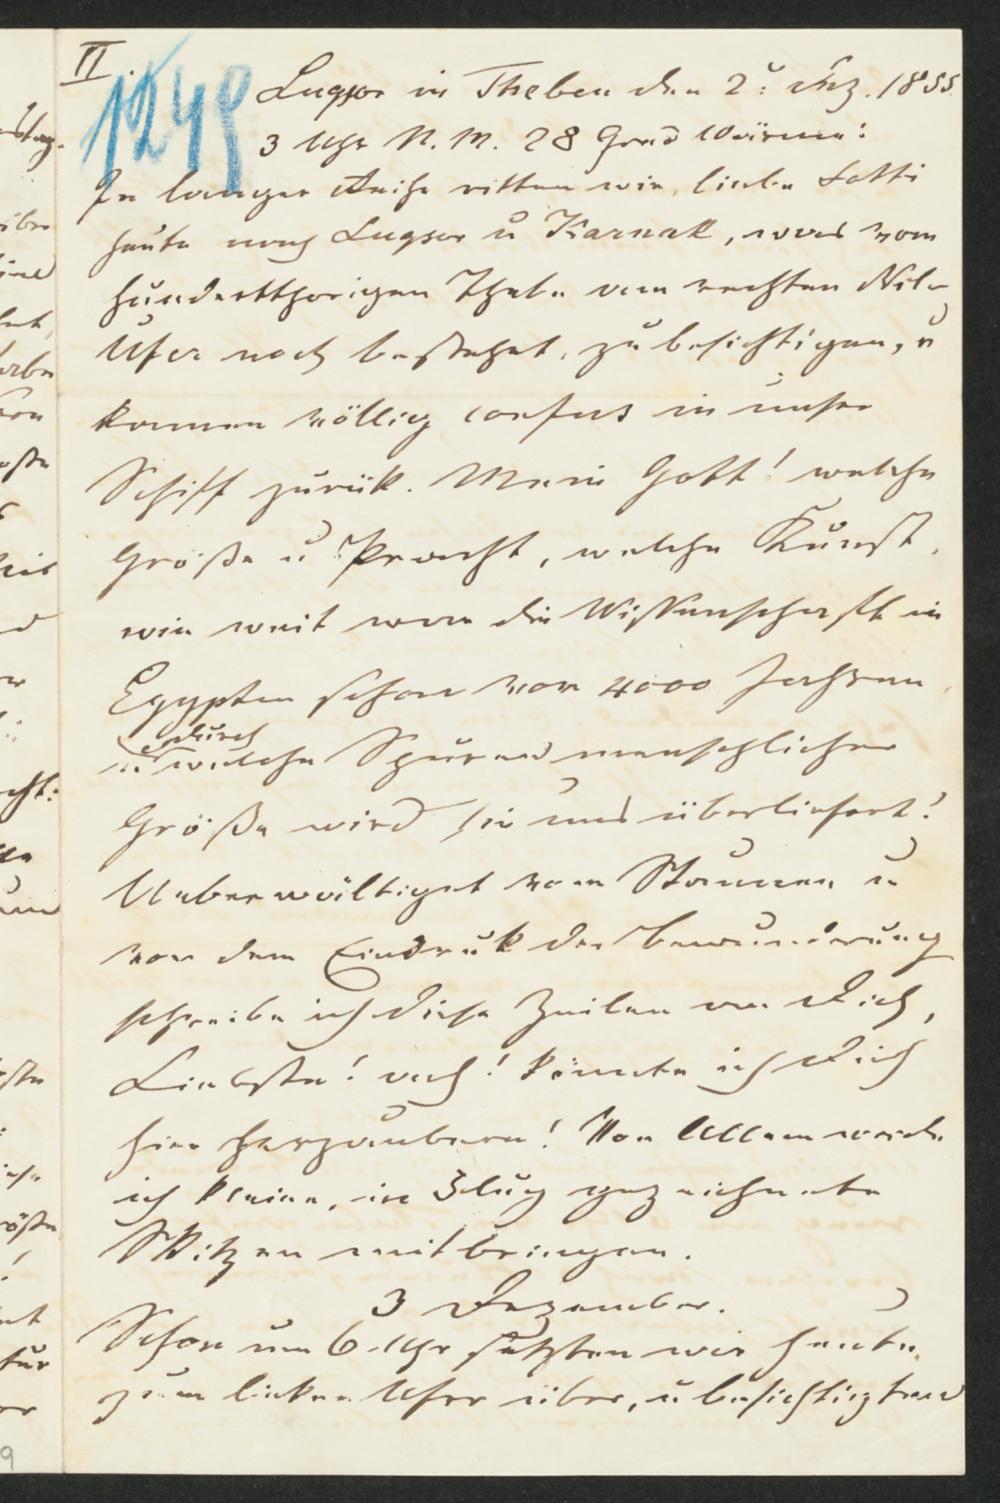 II.
1249
Lugsor in Theben den 2: Dez. 1855
3 Uhr N. M. 28 Grad Wärme:
In langer Reihe ritten wir, liebe Lotti
heute nach Lugsor u Karnak, was vom
hundertthorigen Theben am rechten Nil-
Ufer noch besteht, zu besichtigen, u
kamen völlig confus in unser
Schiff zurük. Mein Gott! welche
Größe u Pracht, welche Kunst,
wie weit war die Wissenschaft in
Egypten schon vor 4000 Jahren,
u durch welche Spuren menschlicher
Größe wird sie uns überliefert!
Ueberwältiget vom Staunen u
von dem Eindruk der Bewunderung
schreibe ich diese Zeilen an Dich,
Liebste! ach! könnte ich Dich
hier herzaubern! Von Allem werde
ich kleine, im Flug gezeichnete
Skitzen mitbringen.
3 Dezember.
Schon um 6 Uhr setzten wir heute
zum linken Ufer über, u besichtigten